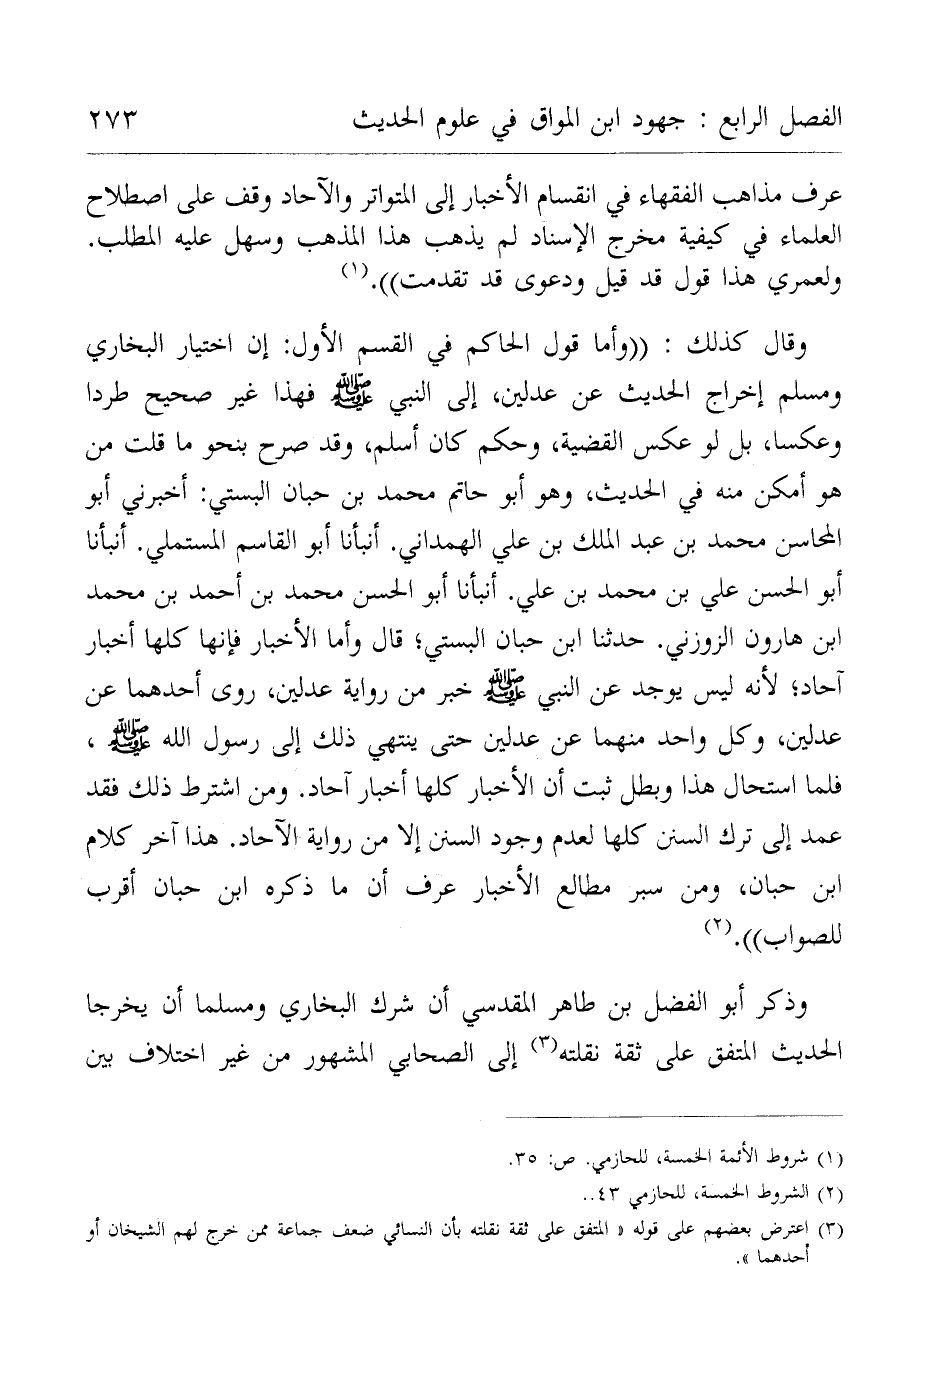 الفصل الرابع : جهود ابن المواق في علوم الحديث ٢٧٣
عرف مذاهب الفقهاء في انقسام الأخبار إلى المتواتر والآحاد وقف على اصطلاح
العلماء في كيفية مخرج الإسناد لم يذهب هذا المذهب وسهل عليه المطلب.
ولعمري هذا قول قد قيل ودعوى قد تقدمت)).(١)
وقال كذلك : ((وأما قول الحاكم في القسم الأول: إن اختيار البخاري
ومسلم إخراج الحديث عن عدلين، إلى النبي ﷺ فهذا غير صحيح طردا
وعكسا، بل لو عكس القضية، وحكم كان أسلم، وقد صرح بنحو ما قلت من
هو أمكن منه في الحديث، وهو أبو حاتم محمد بن حبان البستي: أخبرني أبو
المحاسن محمد بن عبد الملك بن علي الهمداني. أنبأنا أبو القاسم المستملي. أنبأنا
أبو الحسن علي بن محمد بن علي. أنبأنا أبو الحسن محمد بن أحمد بن محمد
ابن هارون الزوزني. حدثنا ابن حبان البستي؛ قال وأما الأخبار فإنها كلها أخبار
آحاد؛ لأنه ليس يوجد عن النبي ﷺ خبر من رواية عدلين، روى أحدهما عن
عدلين، وكل واحد منهما عن عدلين حتى ينتهي ذلك إلى رسول الله ﷺ ،
فلما استحال هذا وبطل ثبت أن الأخبار كلها أخبار آحاد. ومن اشترط ذلك فقد
عمد إلى ترك السنن كلها لعدم وجود السنن إلا من رواية الآحاد. هذا آخر كلام
ابن حبان، ومن سبر مطالع الأخبار عرف أن ما ذكره ابن حبان أقرب
للصواب)).(٢)
وذكر أبو الفضل بن طاهر المقدسي أن شرك البخاري ومسلما أن يخرجا
الحديث المتفق على ثقة نقلته(٣) إلى الصحابي المشهور من غير اختلاف بين
(١) شروط الأئمة الخمسة، للحازمي. ص: ٣٥.
(٢) الشروط الخمسة، للحازمي ٤٣..
(٣) اعترض بعضهم على قوله « المتفق على ثقة نقلته بأن النسائي ضعف جماعة ممن خرج لهم الشيخان أو
أحدهما ».